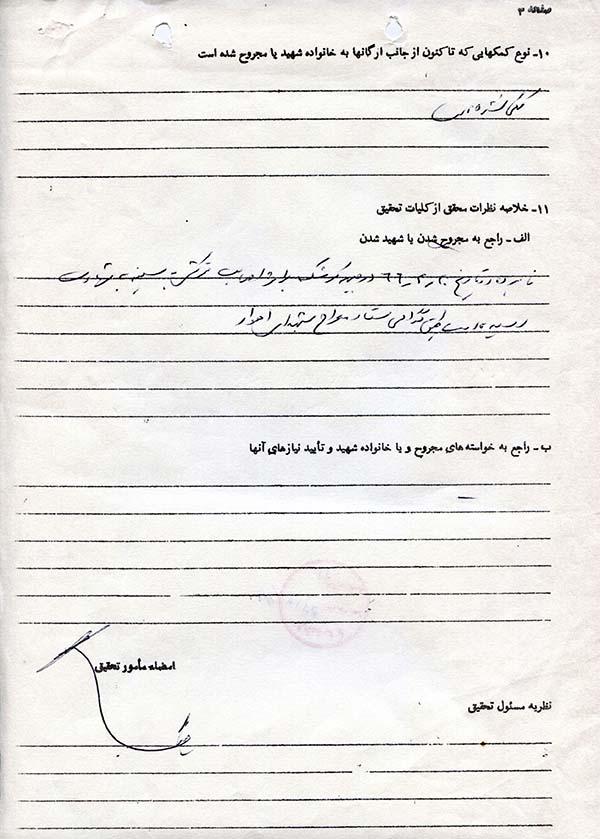 صفحه ۳
۱۰ـ نوع کمکهایی که تا کنون از جانب ارگانها به خانواده شهید یا مجروح شده است
کمکی نشده است
۱۱ـ خلاصه نظرات محقق از کلیات تحقیق
الف ـ راجع به مجروح شدن یا شهید شدن
نامبرده در تاریخ در اثر اصابت ترکش به سینه به شهادت
رسیده است گواهی ستاد معراج شهدای اهواز
ب ـ راجع به خواسته های مجروح و یا خانواده شهید و تأیید نیازهای آنها
ـ
امضاء مأمور تحقیق
نظریه مسئول تحقیق